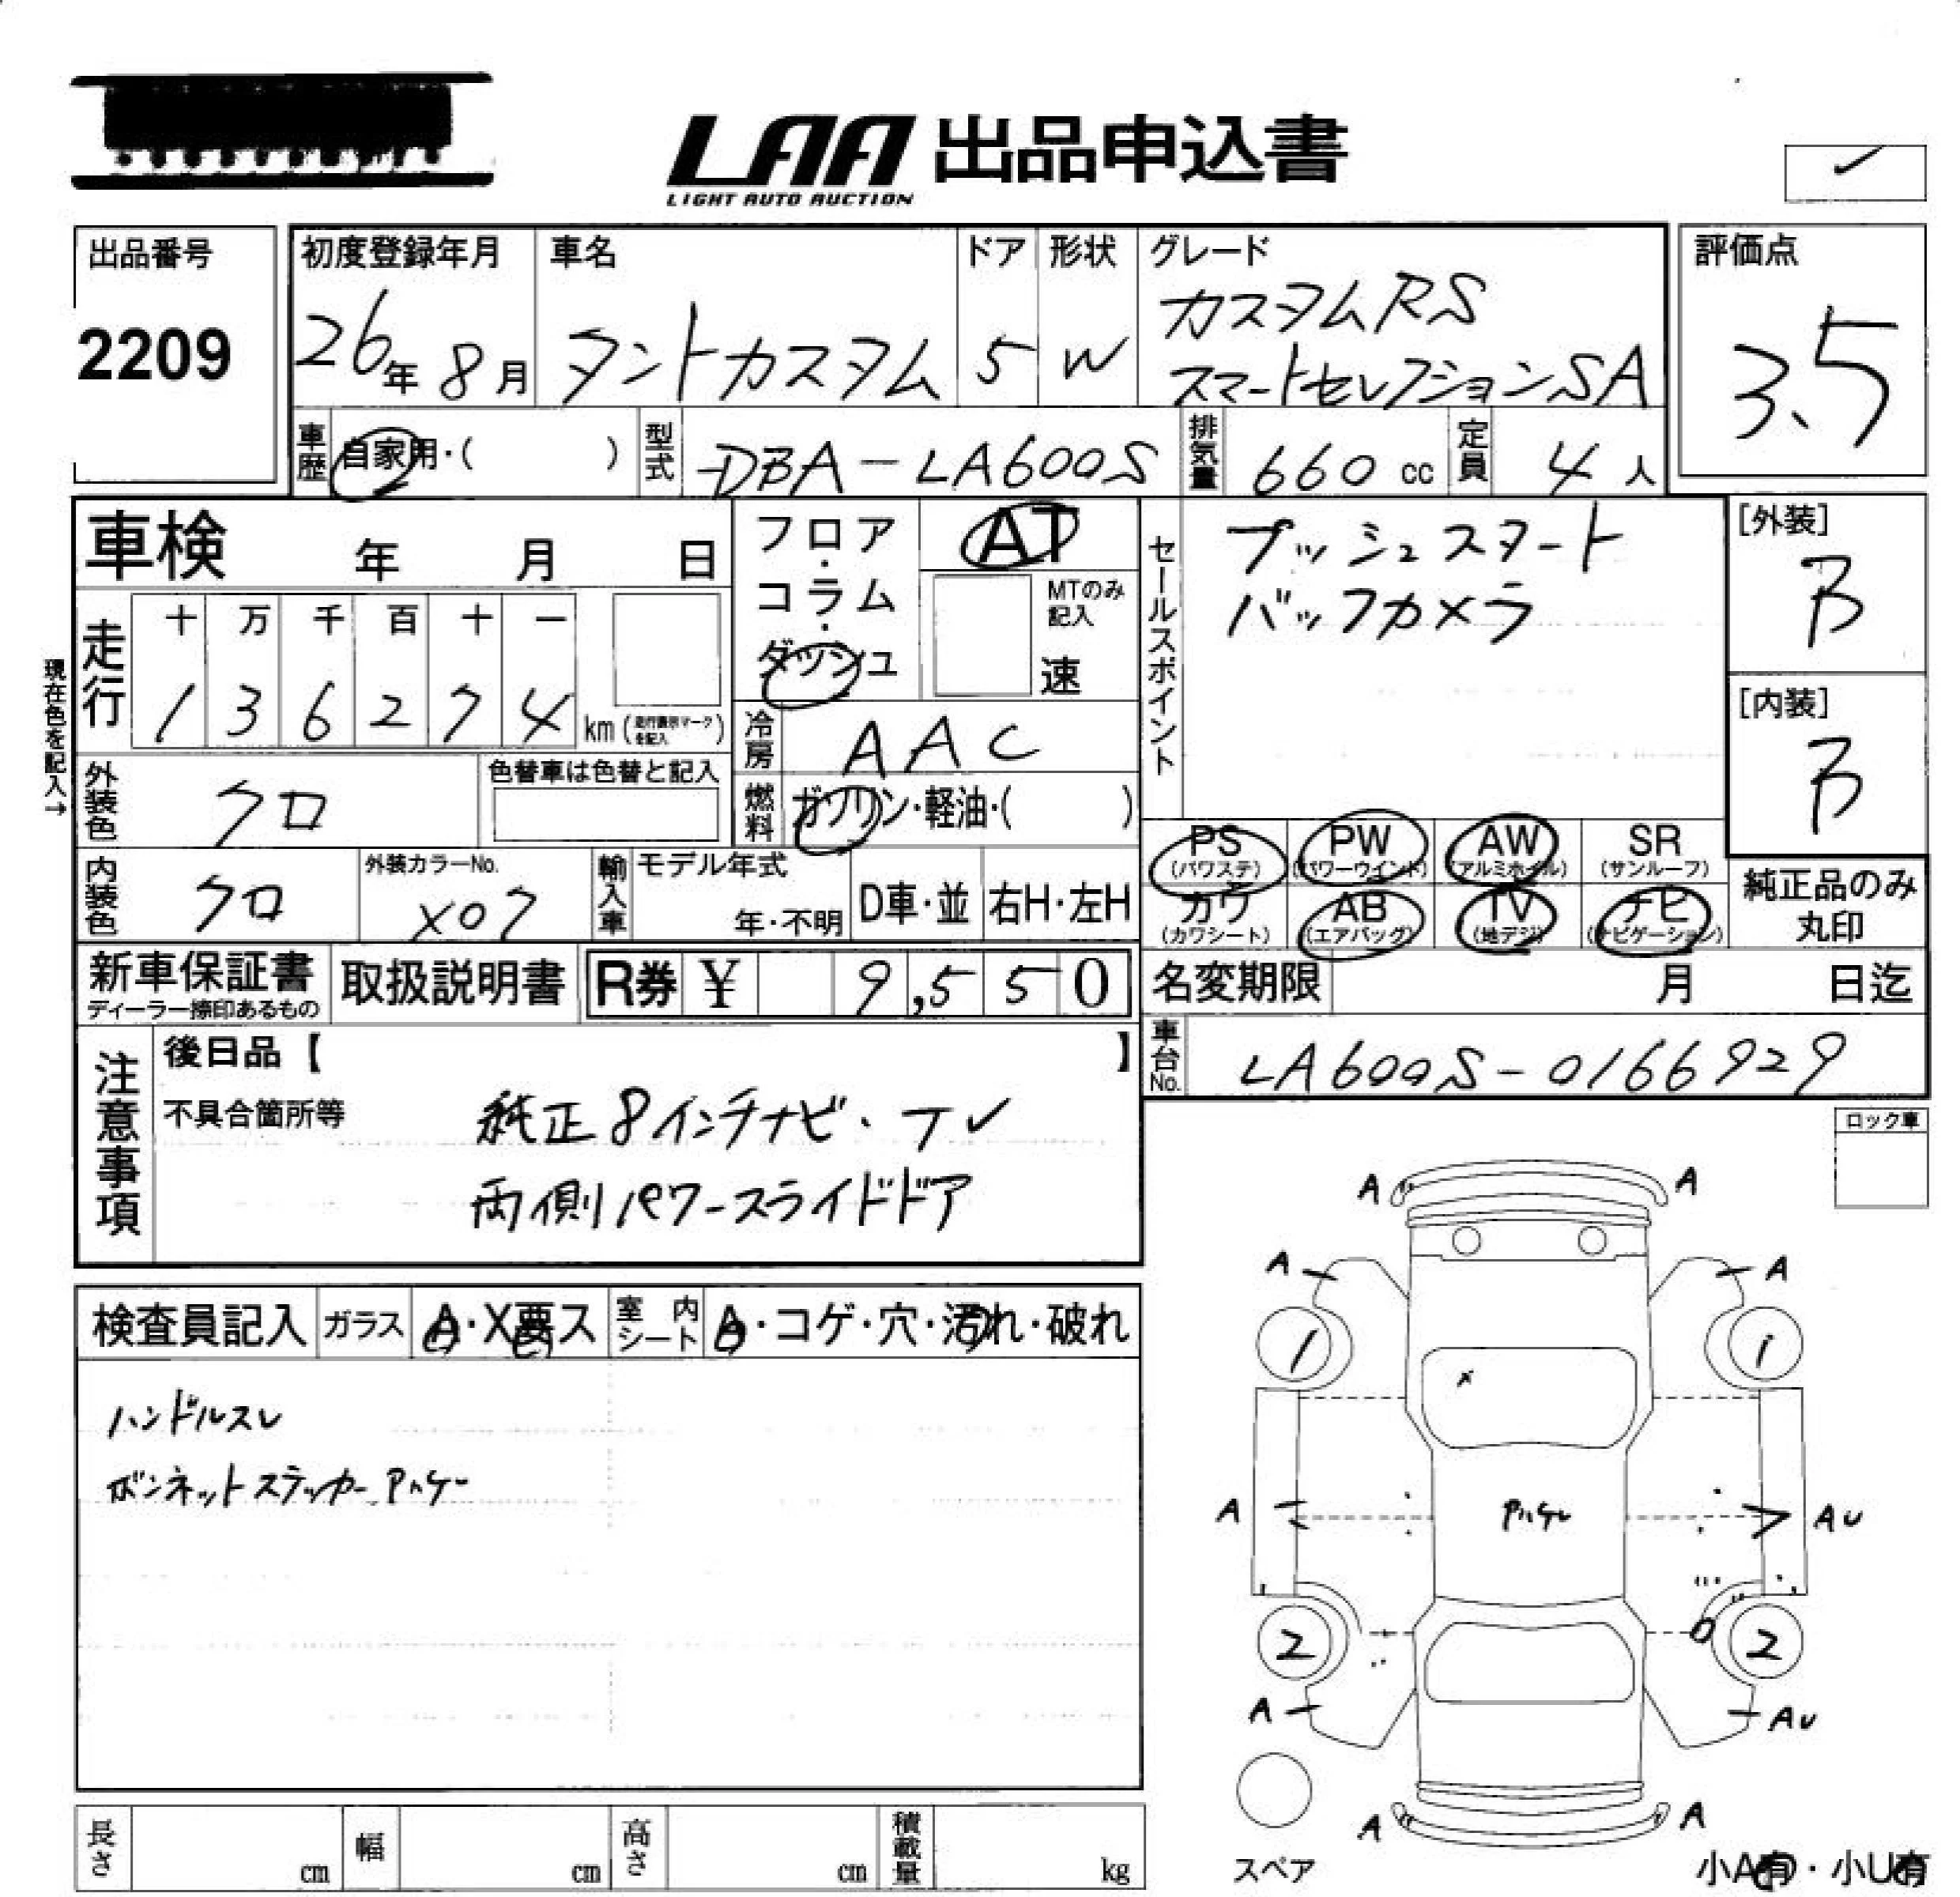 LAA 出品申込書
LIGHT AUTO AUCTION
出品番号
2209
初度登録年月
26年 8月
車名
タントカスタム
ドア
5
形状
W
グレード
カスタムRS
スマートセレクションSA
評価点
3.5
車歴
自家用・( )
型式
DBA-LA600S
排気量
660 cc
定員
4人
車検 年 月 日
フロア・コラム・ダッシュ
AT
MTのみ記入
速
セールスポイント
プッシュスタート
バックカメラ
[外装]
B
[内装]
B
現在色を記入→
走行
十 万 千 百 十 一
1 3 6 2 7 4 km (走行表示マークを記入)
冷房
AAC
外装色
クロ
色替車は色替と記入
燃料
ガソリン・軽油・( )
内装色
クロ
外装カラーNo.
X07
輸入車
モデル年式
年・不明
D車・並
右H・左H
PS (パワステ)
PW (パワーウインド)
AW (アルミホイル)
SR (サンルーフ)
カワ (カワシート)
AB (エアバッグ)
TV (地デジ)
ナビ (ナビゲーション)
純正品のみ
丸印
新車保証書
ディーラー捺印あるもの
取扱説明書
R券 ¥ 9,550
名変期限 月 日迄
車台No.
LA600S-0166929
注意事項
後日品【 】
不具合箇所等
純正8インチナビ・TV
両側パワースライドドア
ロック車
検査員記入
ガラス
A・X要ス
室内シート
A・コゲ・穴・汚れ・破れ
ハンドルスレ
ボンネットステッカーアトケー
A A
A A
1 1
X
A AU
2 2
A AU
A A
スペア
小A有・小U有
長さ cm
幅 cm
高さ cm
積載量 kg